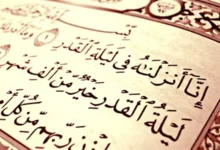 بِسْمِ
إِنَّا أَنزَلْنَٰهُ فِي لَيْلَةِ ٱلْقَدْرِ ١
لَيْلَةُ ٱلْقَدْرِ خَيْرٌ مِّنْ أَلْفِ شَهْرٍ
رَبِّهِم مِّن كُلِّ